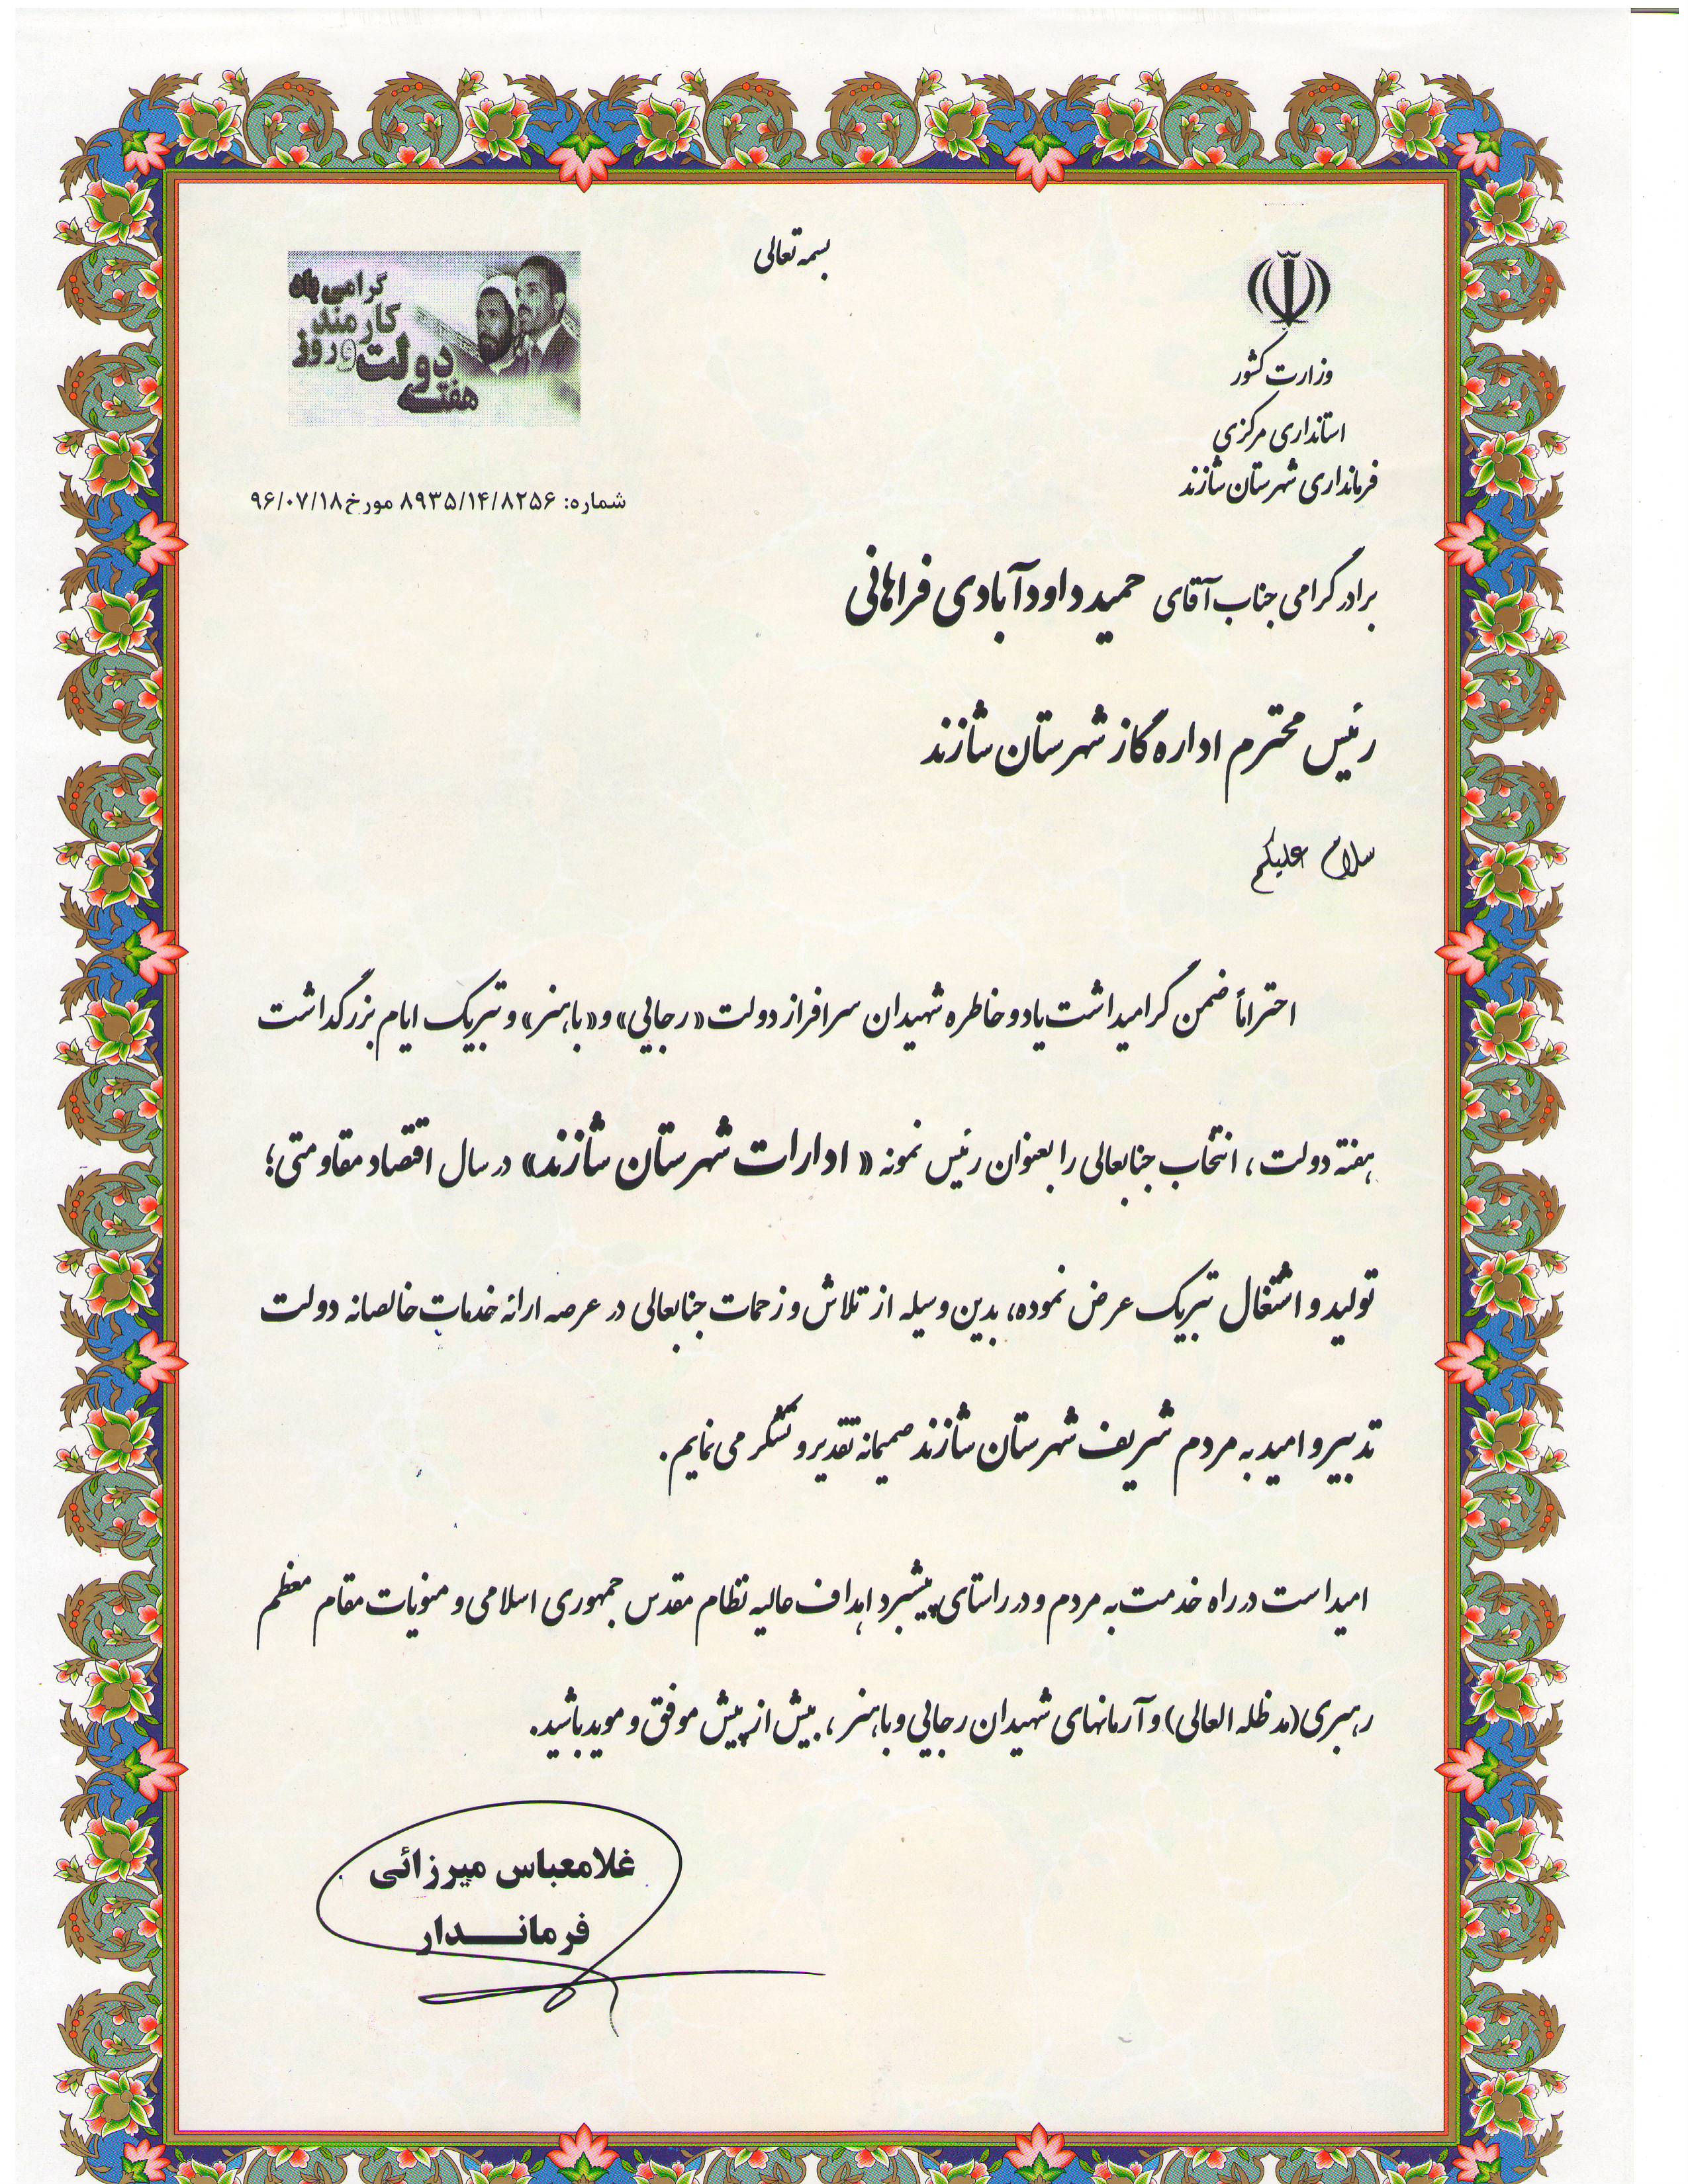 بسمه تعالی
وزارت کشور
استانداری مرکزی
فرمانداری شهرستان شازند
گرامی باد
کارمند
هفته‌ی دولت و روز
شماره: ۸۹۳۵/۱۴/۸۲۵۶ مورخ ۹۶/۰۷/۱۸
برادر گرامی جناب آقای حمید داودآبادی فراهانی
رئیس محترم اداره گاز شهرستان شازند
سلام علیکم
احتراماً ضمن گرامیداشت یاد و خاطره شهیدان سرافراز دولت «رجایی» و «باهنر» و تبریک ایام بزرگداشت
هفته دولت، انتخاب جنابعالی را بعنوان رئیس نمونه «ادارات شهرستان شازند» در سال اقتصاد مقاومتی؛
تولید و اشتغال تبریک عرض نموده، بدین وسیله از تلاش و زحمات جنابعالی در عرصه ارائه خدمات خالصانه دولت
تدبیر و امید به مردم شریف شهرستان شازند صمیمانه تقدیر و تشکر می نمایم.
امید است در راه خدمت به مردم و در راستای پیشبرد اهداف عالیه نظام مقدس جمهوری اسلامی و منویات مقام معظم
رهبری(مدظله العالی) و آرمانهای شهیدان رجایی و باهنر، بیش از پیش موفق و موید باشید.
غلامعباس میرزائی
فرمانـــدار